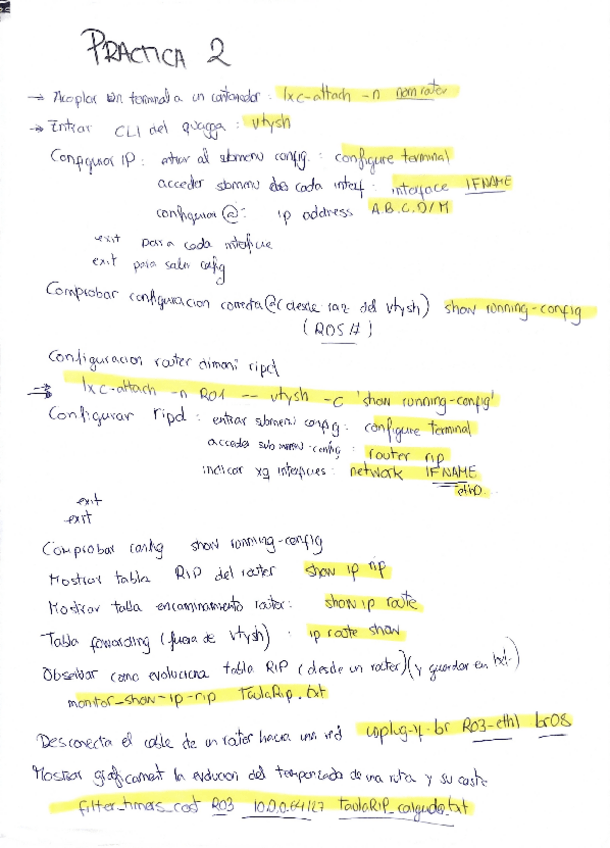 PRACTICA 2
→ Acoplar un terminal a un contenedor : lxc-attach -n nomrouter
→ Entrar CLI del quagga : vtysh
Configurar IP : entrar al submenu config. : configure terminal
acceder submenu de cada interf : interface IFNAME
configurar @ : ip address A.B.C.D/M
exit para cada interficie
exit para salir config
Comprobar configuracion correcta @ (desde raiz del vtysh) show running-config
(R05#)
Configuracion router dimoni ripd
→ lxc-attach -n R01 -- vtysh -c 'show running-config'
Configurar ripd : entrar submenu config : configure terminal
acceder submenu config : router rip
indicar xq interficies : network IFNAME
exit
exit
Comprobar config show running-config
Mostrar tabla RIP del router show ip rip
Mostrar tabla encaminamiento router : show ip route
Tabla fowarding (fuera de vtysh) : ip route show
Observar como evoluciona tabla RIP (desde un router) (y guardar en txt.)
monitor_show-ip-rip TaulaRip.txt
Desconecta el cable de un router hacia una red unplug-if-br R03-eth1 br08
Mostrar graficament la evolucion del temporizado de una ruta y su coste
filter_timers_cost R03 10.0.0.64/27 taulaRIP_caiguda.txt